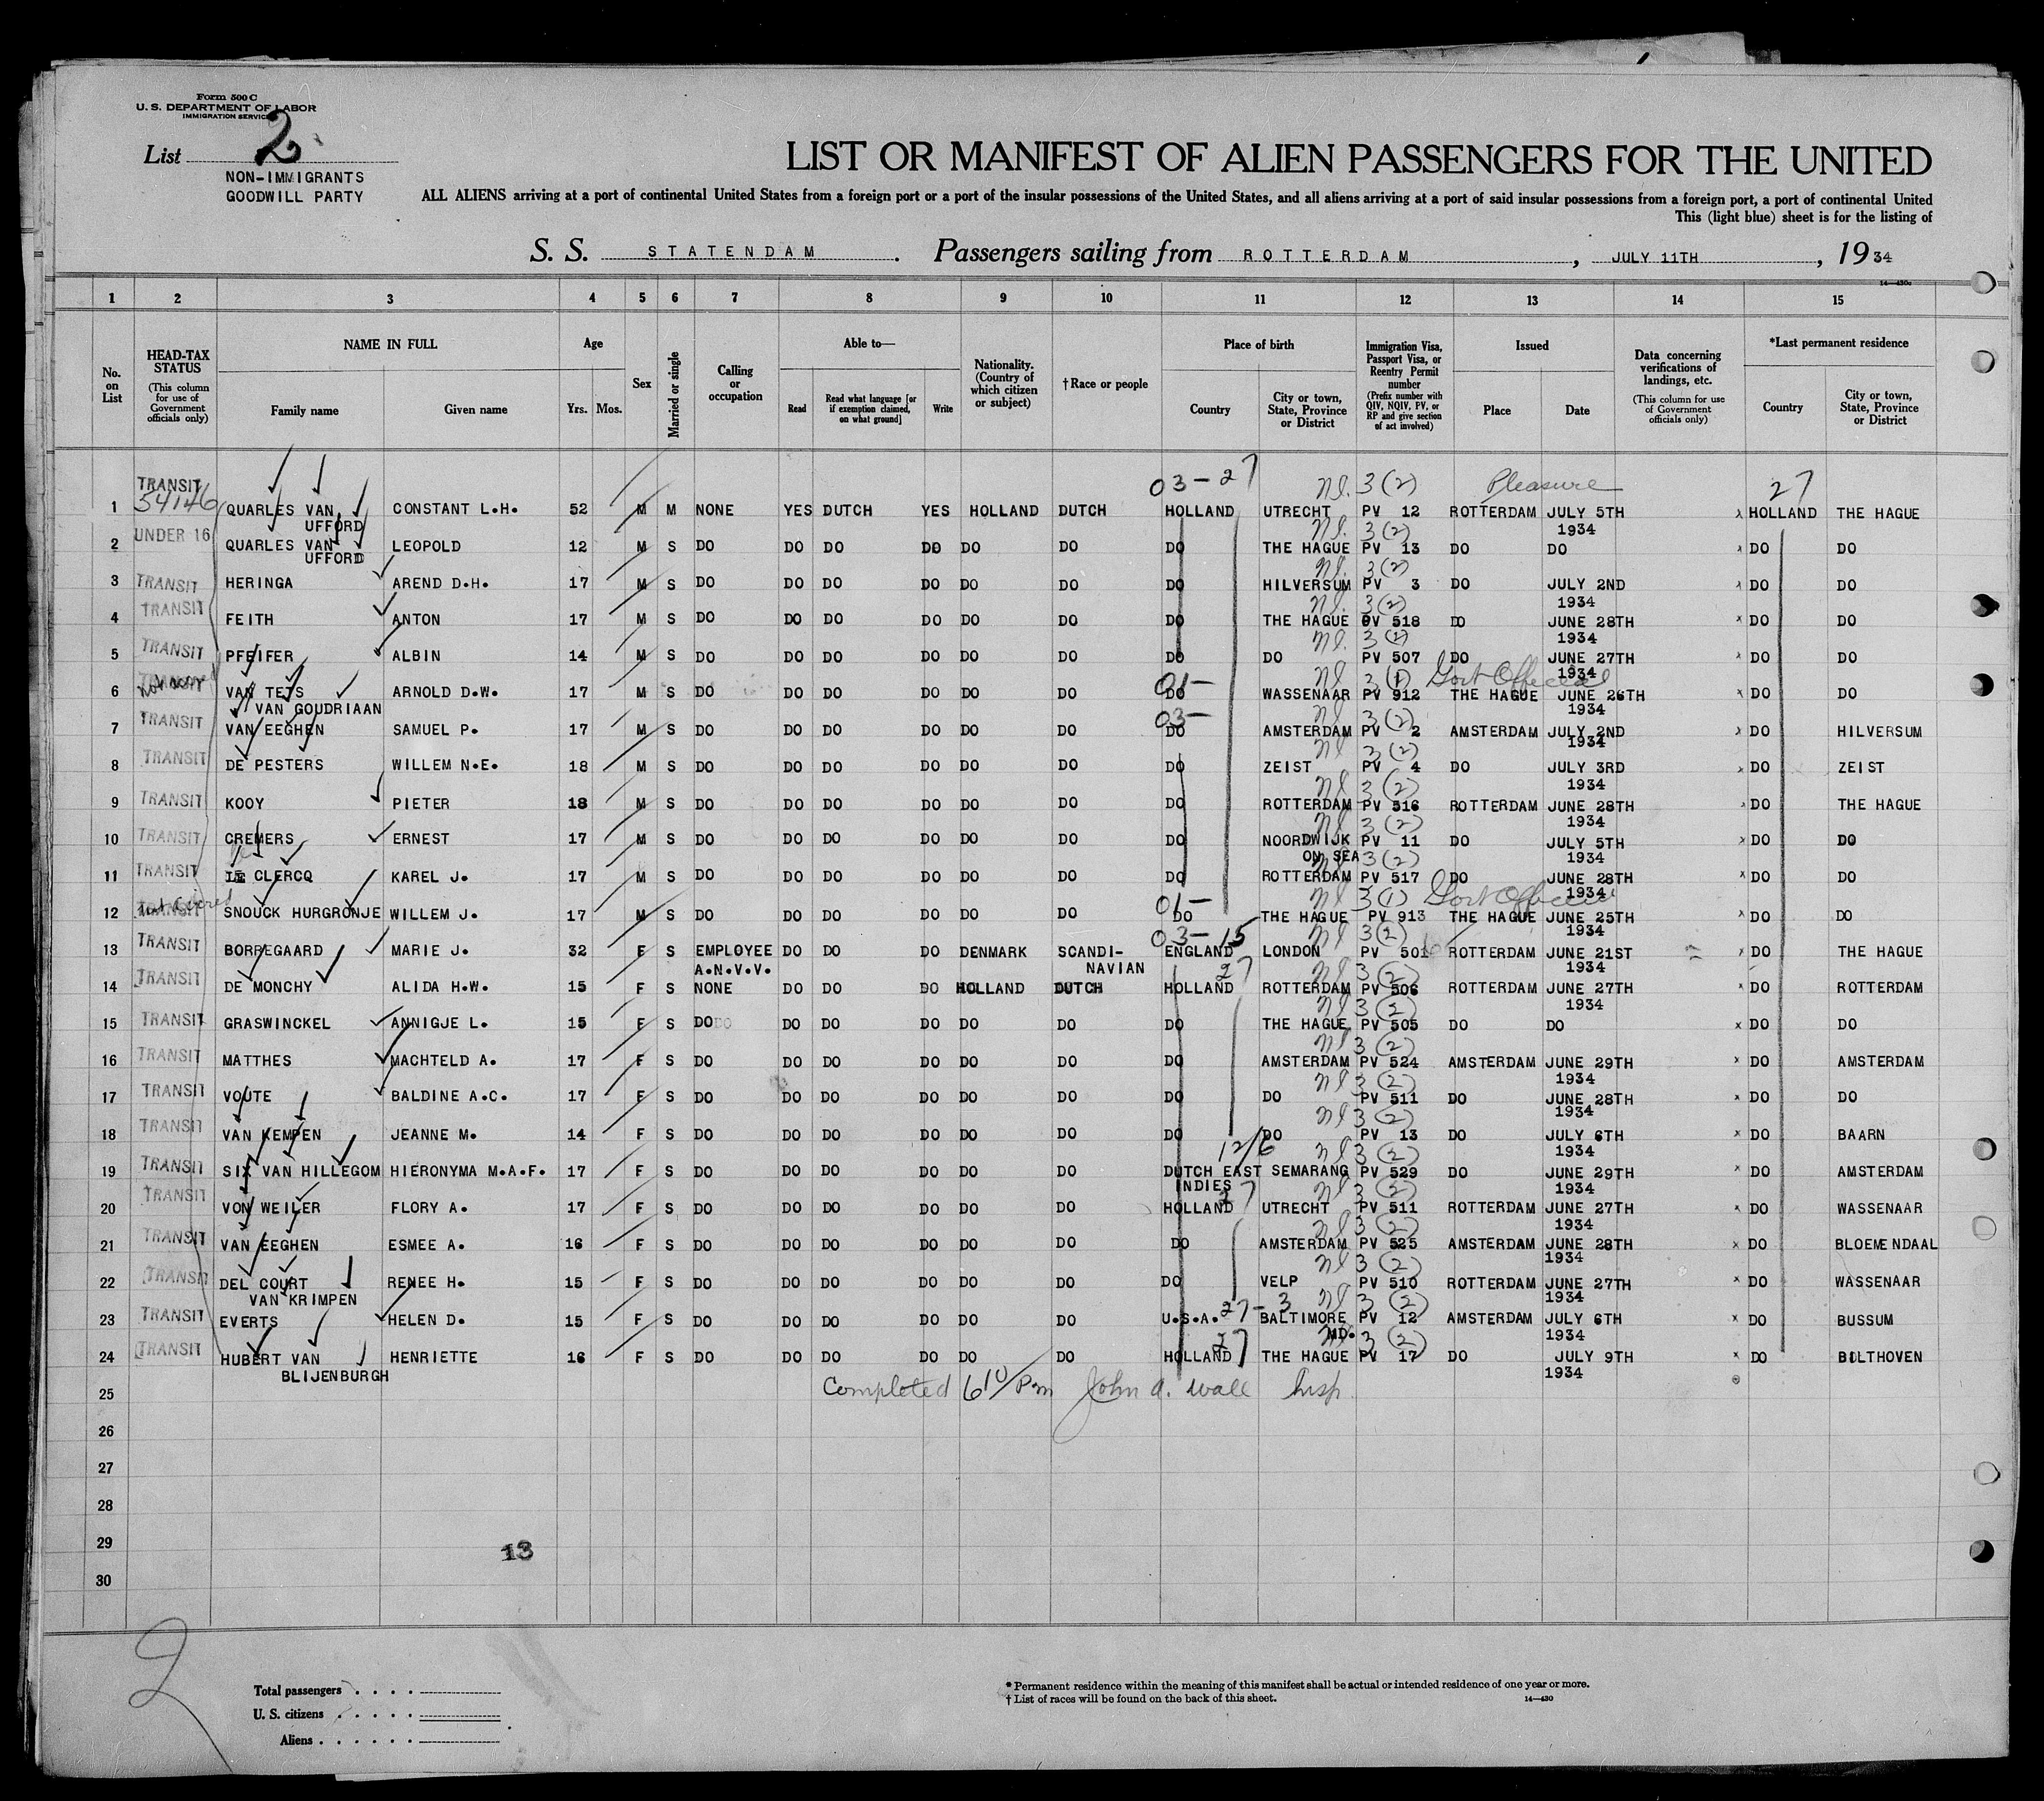 Form 500 C
U. S. DEPARTMENT OF LABOR
IMMIGRATION SERVICE
List 2
NON-IMMIGRANTS
GOODWILL PARTY
LIST OR MANIFEST OF ALIEN PASSENGERS FOR THE UNITED
ALL ALIENS arriving at a port of continental United States from a foreign port or a port of the insular possessions of the United States, and all aliens arriving at a port of said insular possessions from a foreign port, a port of continental United
This (light blue) sheet is for the listing of
S. S. STATENDAM. Passengers sailing from ROTTERDAM, JULY 11TH, 1934
14—430c
1 2 3 4 5 6 7 8 9 10 11 12 13 14 15
No. on List
HEAD-TAX STATUS (This column for use of Government officials only)
NAME IN FULL Family name Given name
Age Yrs. Mos.
Sex
Married or single
Calling or occupation
Able to— Read Read what language [or if exemption claimed, on what ground] Write
Nationality. (Country of which citizen or subject)
†Race or people
Place of birth Country City or town, State, Province or District
Immigration Visa, Passport Visa, or Reentry Permit number (Prefix number with QIV, NQIV, PV, or RP and give section of act involved)
Issued Place Date
Data concerning verifications of landings, etc. (This column for use of Government officials only)
*Last permanent residence Country City or town, State, Province or District
TRANSIT 03-27 Nl. 3(2) Pleasure 27
1 54146 QUARLES VAN UFFORD CONSTANT L.H. 52 M M NONE YES DUTCH YES HOLLAND DUTCH HOLLAND UTRECHT PV 12 ROTTERDAM JULY 5TH 1934 x HOLLAND THE HAGUE
Nl. 3(2)
2 UNDER 16 QUARLES VAN UFFORD LEOPOLD 12 M S DO DO DO DO DO DO DO THE HAGUE PV 13 DO DO x DO DO
Nl. 3(2)
3 TRANSIT HERINGA AREND D.H. 17 M S DO DO DO DO DO DO DO HILVERSUM PV 3 DO JULY 2ND 1934 x DO DO
Nl. 3(2)
4 TRANSIT FEITH ANTON 17 M S DO DO DO DO DO DO DO THE HAGUE PV 518 DO JUNE 28TH 1934 x DO DO
Nl. 3(2)
5 TRANSIT PFEIFER ALBIN 14 M S DO DO DO DO DO DO DO DO PV 507 DO JUNE 27TH 1934 x DO DO
01- Nl 3(1) Govt Official
6 TRANSIT VAN TETS VAN GOUDRIAAN ARNOLD D.W. 17 M S DO DO DO DO DO DO DO WASSENAAR PV 912 THE HAGUE JUNE 26TH 1934 x DO DO
03- Nl 3(2)
7 TRANSIT VAN EEGHEN SAMUEL P. 17 M S DO DO DO DO DO DO DO AMSTERDAM PV 2 AMSTERDAM JULY 2ND 1934 x DO HILVERSUM
Nl 3(2)
8 TRANSIT DE PESTERS WILLEM N.E. 18 M S DO DO DO DO DO DO DO ZEIST PV 4 DO JULY 3RD 1934 x DO ZEIST
Nl 3(2)
9 TRANSIT KOOY PIETER 18 M S DO DO DO DO DO DO DO ROTTERDAM PV 516 ROTTERDAM JUNE 28TH 1934 x DO THE HAGUE
Nl 3(2)
10 TRANSIT CREMERS ERNEST 17 M S DO DO DO DO DO DO DO NOORDWIJK ON SEA PV 11 DO JULY 5TH 1934 x DO DO
Nl 3(2)
11 TRANSIT CLERCQ KAREL J. 17 M S DO DO DO DO DO DO DO ROTTERDAM PV 517 DO JUNE 28TH 1934 x DO DO
01- Nl 3(1) Govt Official
12 TRANSIT SNOUCK HURGRONJE WILLEM J. 17 M S DO DO DO DO DO DO DO THE HAGUE PV 913 THE HAGUE JUNE 25TH 1934 x DO DO
03-15 Nl 3(2)
13 TRANSIT BORREGAARD MARIE J. 32 F S EMPLOYEE A.N.V.V. DO DO DO DENMARK SCANDI-NAVIAN ENGLAND LONDON PV 501 ROTTERDAM JUNE 21ST 1934 x DO THE HAGUE
27 Nl 3(2)
14 TRANSIT DE MONCHY ALIDA H.W. 15 F S NONE DO DO DO HOLLAND DUTCH HOLLAND ROTTERDAM PV 506 ROTTERDAM JUNE 27TH 1934 x DO ROTTERDAM
Nl 3(2)
15 TRANSIT GRASWINCKEL ANNIGJE L. 15 F S DO DO DO DO DO DO DO THE HAGUE PV 505 DO DO x DO DO
Nl 3(2)
16 TRANSIT MATTHES MACHTELD A. 17 F S DO DO DO DO DO DO DO AMSTERDAM PV 524 AMSTERDAM JUNE 29TH 1934 x DO AMSTERDAM
Nl 3(2)
17 TRANSIT VOUTE BALDINE A.C. 17 F S DO DO DO DO DO DO DO DO PV 511 DO JUNE 28TH 1934 x DO DO
Nl 3(2)
18 TRANSIT VAN KEMPEN JEANNE M. 14 F S DO DO DO DO DO DO DO DO PV 13 DO JULY 6TH 1934 x DO BAARN
12/6 Nl 3(2)
19 TRANSIT SIX VAN HILLEGOM HIERONYMA M.A.F. 17 F S DO DO DO DO DO DO DUTCH EAST INDIES SEMARANG PV 529 DO JUNE 29TH 1934 x DO AMSTERDAM
27 Nl 3(2)
20 TRANSIT VON WEILER FLORY A. 17 F S DO DO DO DO DO DO HOLLAND UTRECHT PV 511 ROTTERDAM JUNE 27TH 1934 x DO WASSENAAR
Nl 3(2)
21 TRANSIT VAN EEGHEN ESMEE A. 16 F S DO DO DO DO DO DO DO AMSTERDAM PV 525 AMSTERDAM JUNE 28TH 1934 x DO BLOEMENDAAL
Nl 3(2)
22 TRANSIT DEL COURT VAN KRIMPEN RENEE H. 15 F S DO DO DO DO DO DO DO VELP PV 510 ROTTERDAM JUNE 27TH 1934 x DO WASSENAAR
27-3 Nl 3(2)
23 TRANSIT EVERTS HELEN D. 15 F S DO DO DO DO DO DO U.S.A. BALTIMORE MD. PV 12 AMSTERDAM JULY 6TH 1934 x DO BUSSUM
27 3(2)
24 TRANSIT HUBERT VAN BLIJENBURGH HENRIETTE 16 F S DO DO DO DO DO DO HOLLAND THE HAGUE PV 17 DO JULY 9TH 1934 x DO BILTHOVEN
25 Completed 6 10/Pm John A. Wall Insp.
26
27
28
29 13
30
2
Total passengers
U. S. citizens
Aliens
* Permanent residence within the meaning of this manifest shall be actual or intended residence of one year or more.
† List of races will be found on the back of this sheet. 14—430